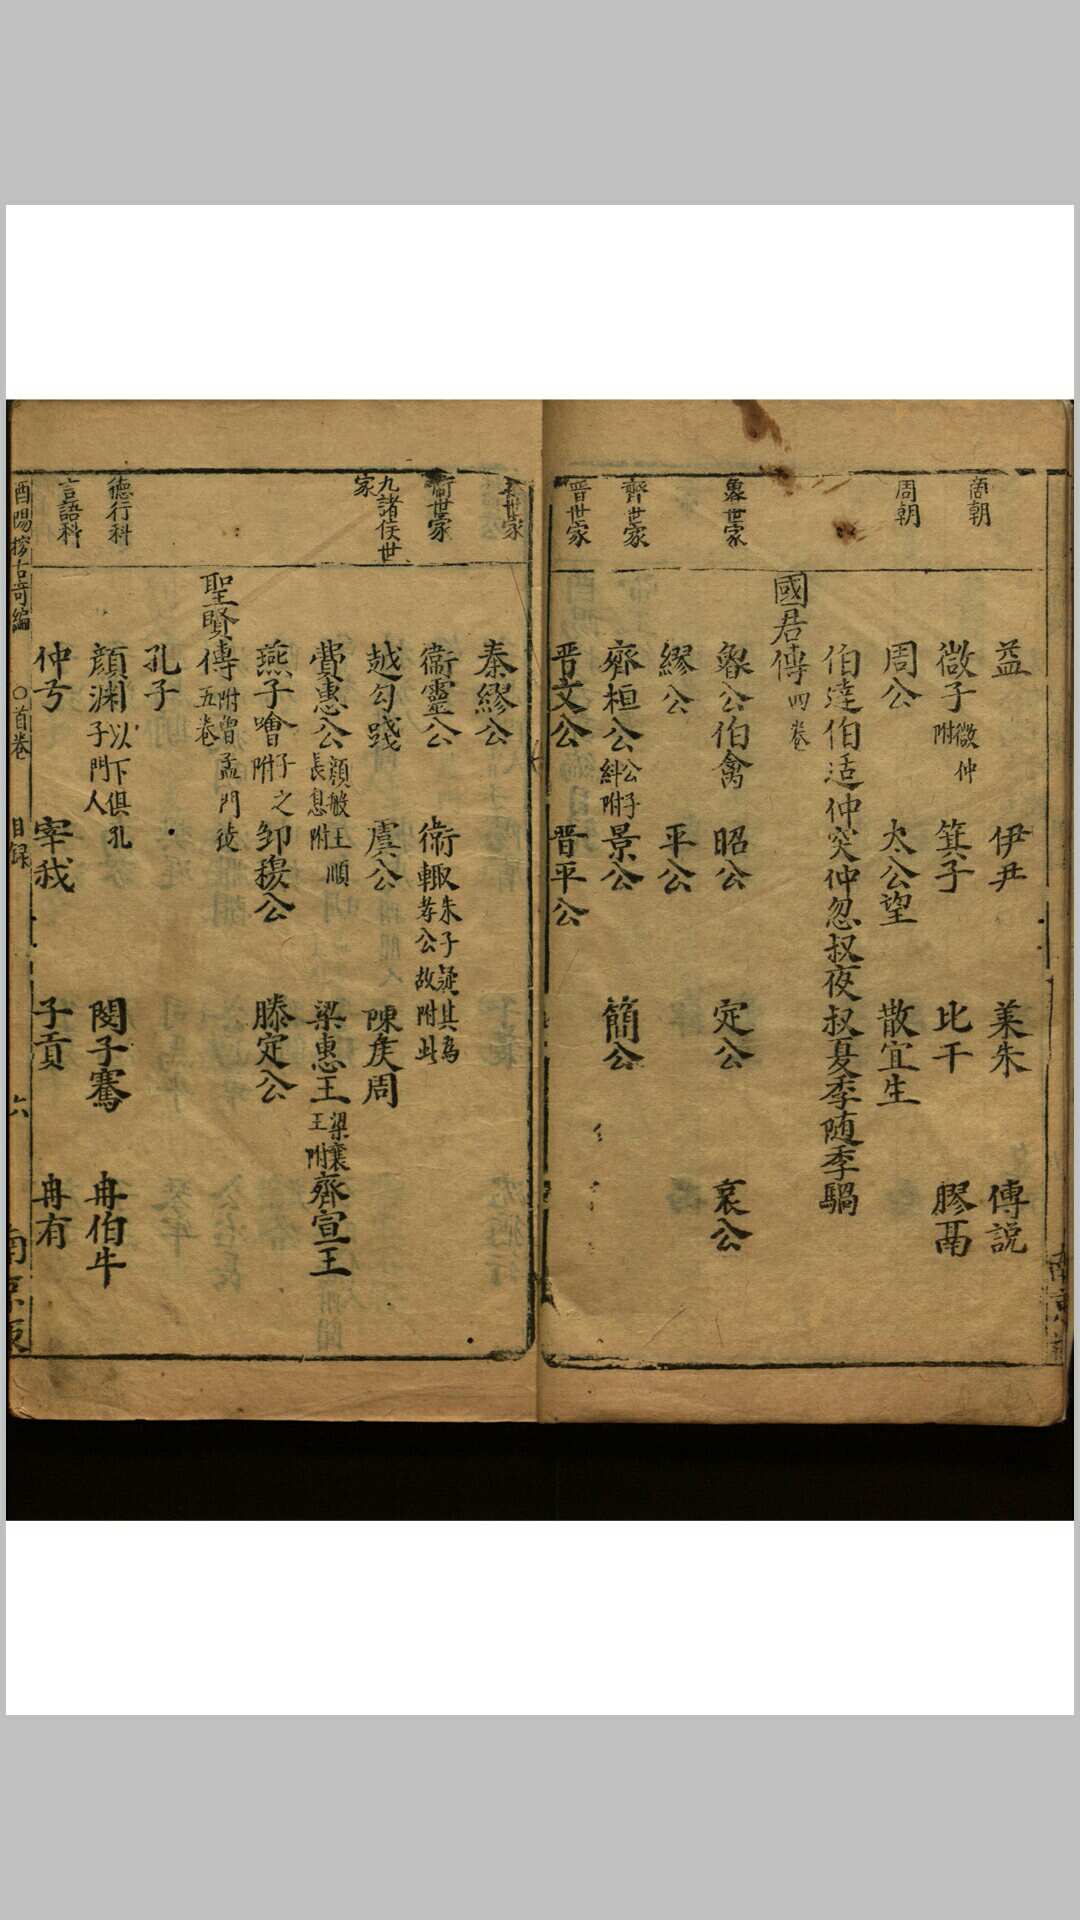 商朝
周朝
魯世家
齊世家
晋世家
益 伊尹 萊朱 傅説
微子 微仲附 箕子 比干 膠鬲
周公 太公望 散宜生
伯達伯适仲突仲忽叔夜叔夏季随季騧
國君傳 四卷
魯公伯禽 昭公 定公 哀公
繆公 平公
齊桓公 公子糾附 景公 簡公
晋文公 晋平公
世家
衛世家
九諸侯世家
德行科
言語科
秦繆公
衛靈公 衛輒 朱子疑其為孝公故附此
越勾踐 虞公 陳矦周
費惠公 顔般王順長息附 梁惠王 梁襄王附 齊宣王
燕子噲 子之附 邹穆公 滕定公
聖賢傳 附曾孟門徒五卷
孔子
顔渊 以下俱孔子門人 閔子騫 冉伯牛
仲弓 宰我 子貢 冉有
酉陽搜古奇編 ○首卷 目録 六 南京板